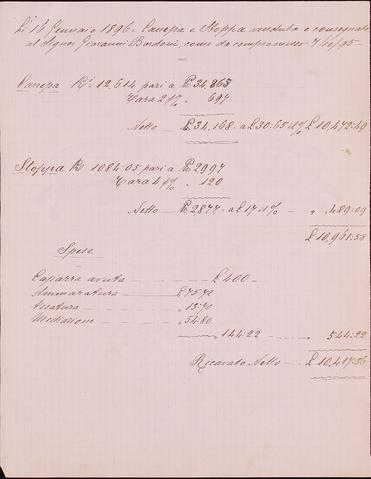 Li 16 Gennaio 1896. Canepa e Stoppa venduta e consegnata
al Signor Giovanni Bordoni, come da compromesso 7/10/95
Canepa K. 12,614 pari a ₤ 34,865
Tara 2 p% " 697
Netto ₤ 34,168 a £ 30:65 d% £ 10,472:49
Stoppa K 1084:05 pari a ₤ 2997
Tara 4 p% " 120
Netto ₤ 2877 a £ 17 d% " 489:09
£ 10,961:58
Spese
Caparra avuta £ 400
£ 75:72
Pesatura " 13:70
Mediazione " 54:80
" 144:22 " 544:22
Ricavato Netto £ 10,417:36